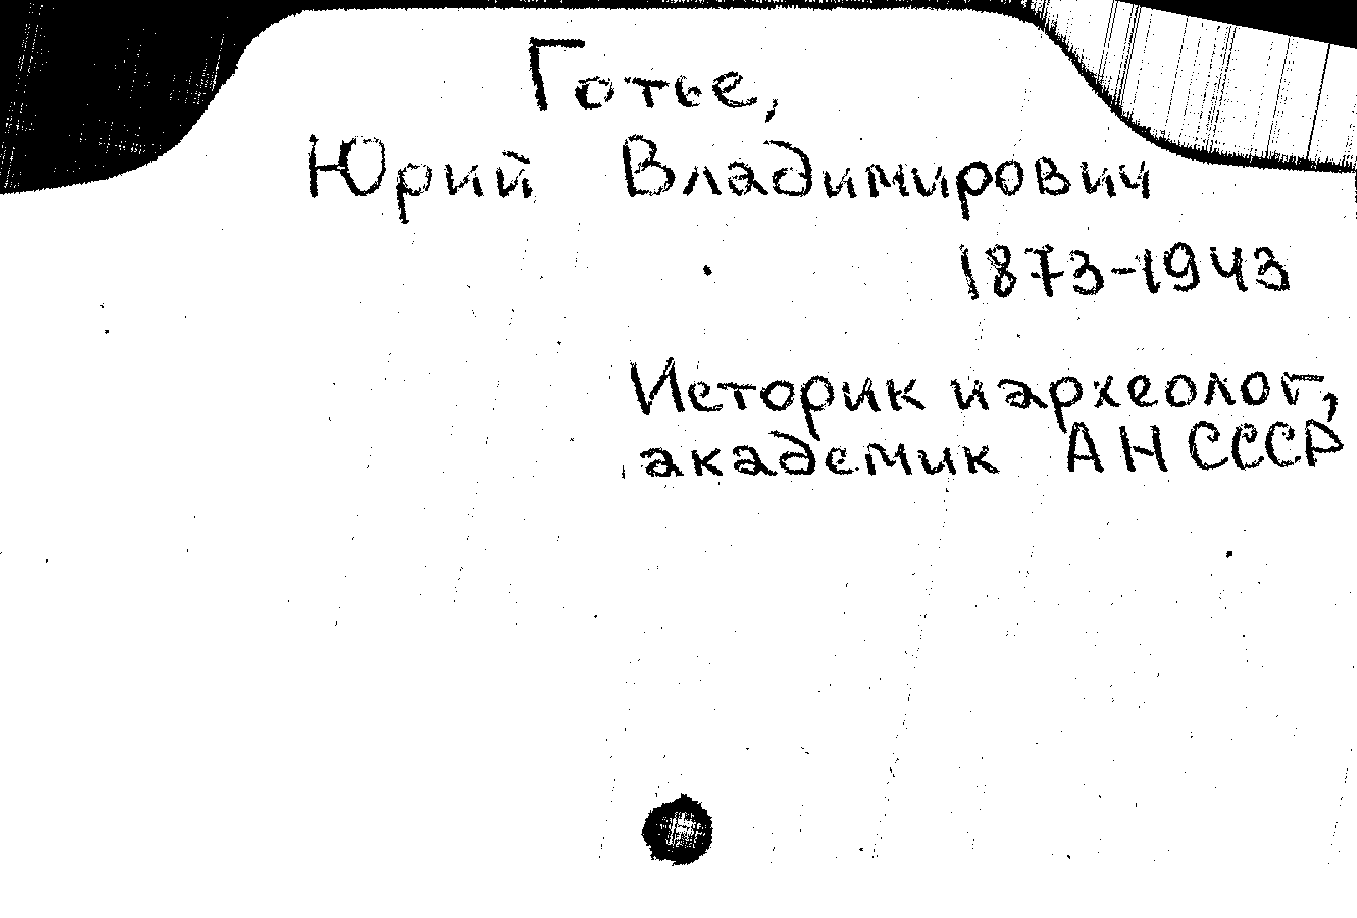 Готье,
Юрий Владимирович
1873-1943
Историк и археолог,
академик АН СССР